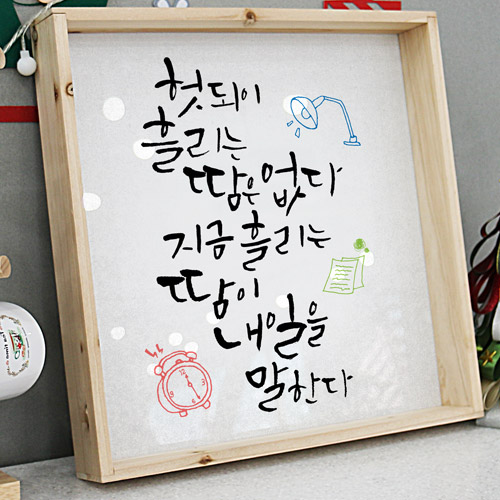 헛되이
흘리는
땀은 없다
지금 흘리는
땀이
내일을
말한다